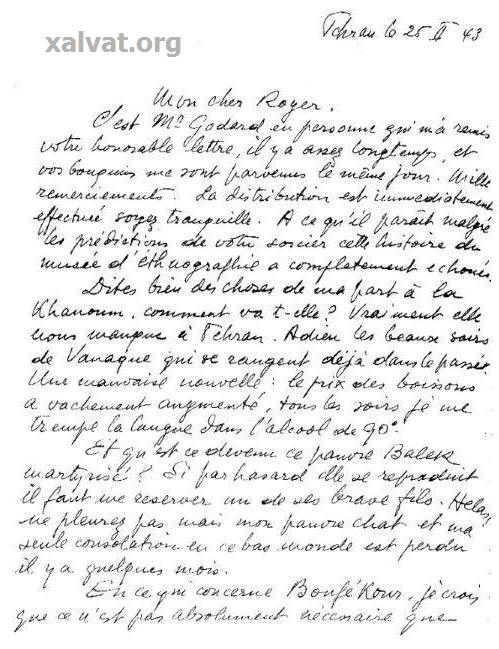 Tehran le 25 II 43
xalvat.org
Mon cher Roger.
C'est Mr Godard en personne qui m'a remis
votre honorable lettre, il y a assez longtemps, et
vos bouquins me sont parvenus le même jour. Mille
remerciements. La distribution est immediatement
effectué soyez tranquille. A ce qu'il parait malgré
les prédictions de votre sorcier cette histoire du
musée d'éthnographie a completement echoué.
Dites bien des choses de ma part à la
Khanoum, comment va t-elle? Vraiment elle
nous manque à Tehran. Adieu les beaux soirs
de Vanaque qui se rangent déjà dans le passé.
Une mauvaise nouvelle: le prix des boissons
a vachement augmenté, tous les soirs je me
trempe la langue dans l'alcool de 90°.
Et qu'est ce devenu ce pauvre Balek
martyrisé? Si par hasard elle se reproduit
il faut me reserver un de ses brave fils. Helas,
ne pleurez pas mais mon pauvre chat et ma
seule consolation en ce bas monde est perdu
il y a quelques mois.
En ce qui concerne Boufé Kour, je crois
que ce n'est pas absolument nécessaire que